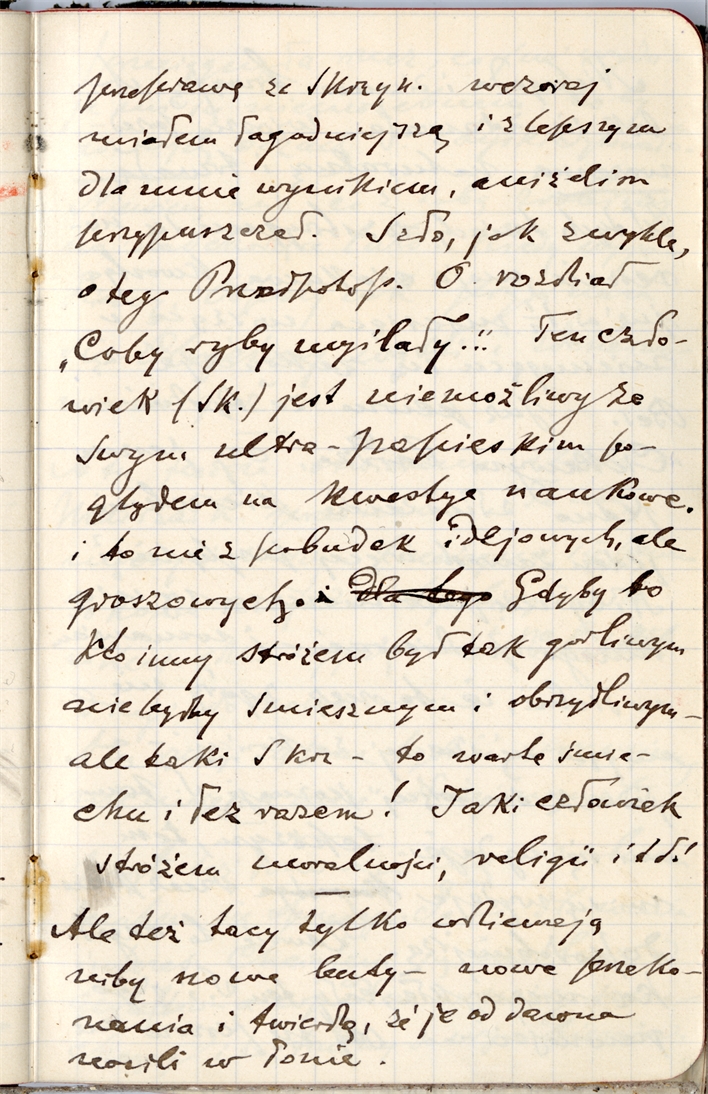 przeprawę ze Skrzyn. wczoraj
miałem łagodniejszą, i z lepszym
dla mnie wynikiem, aniżelim
przypuszczał. Szło, jak zwykle,
o tego Przedpotop. O rozdział
„Coby ryby myślały..." Ten czło-
wiek (Sk.) jest niemożliwy ze
swym ultra-papieskim po-
glądem na kwestye naukowe.
i to nie z pobudek idejowych, ale
groszowych. i Dla tego Gdyby to
kto inny stróżem był tak gorliwym
nie byłby śmiesznym i obrzydliwym –
ale taki Skrz – to warte śmie-
chu i łez razem! Taki człowiek
stróżem moralności, religii i t d!
Ale też tacy tylko wdziewają
niby nowe buty – nowe przeko-
nania i twierdzą, że je od dawna
nosili w łonie.